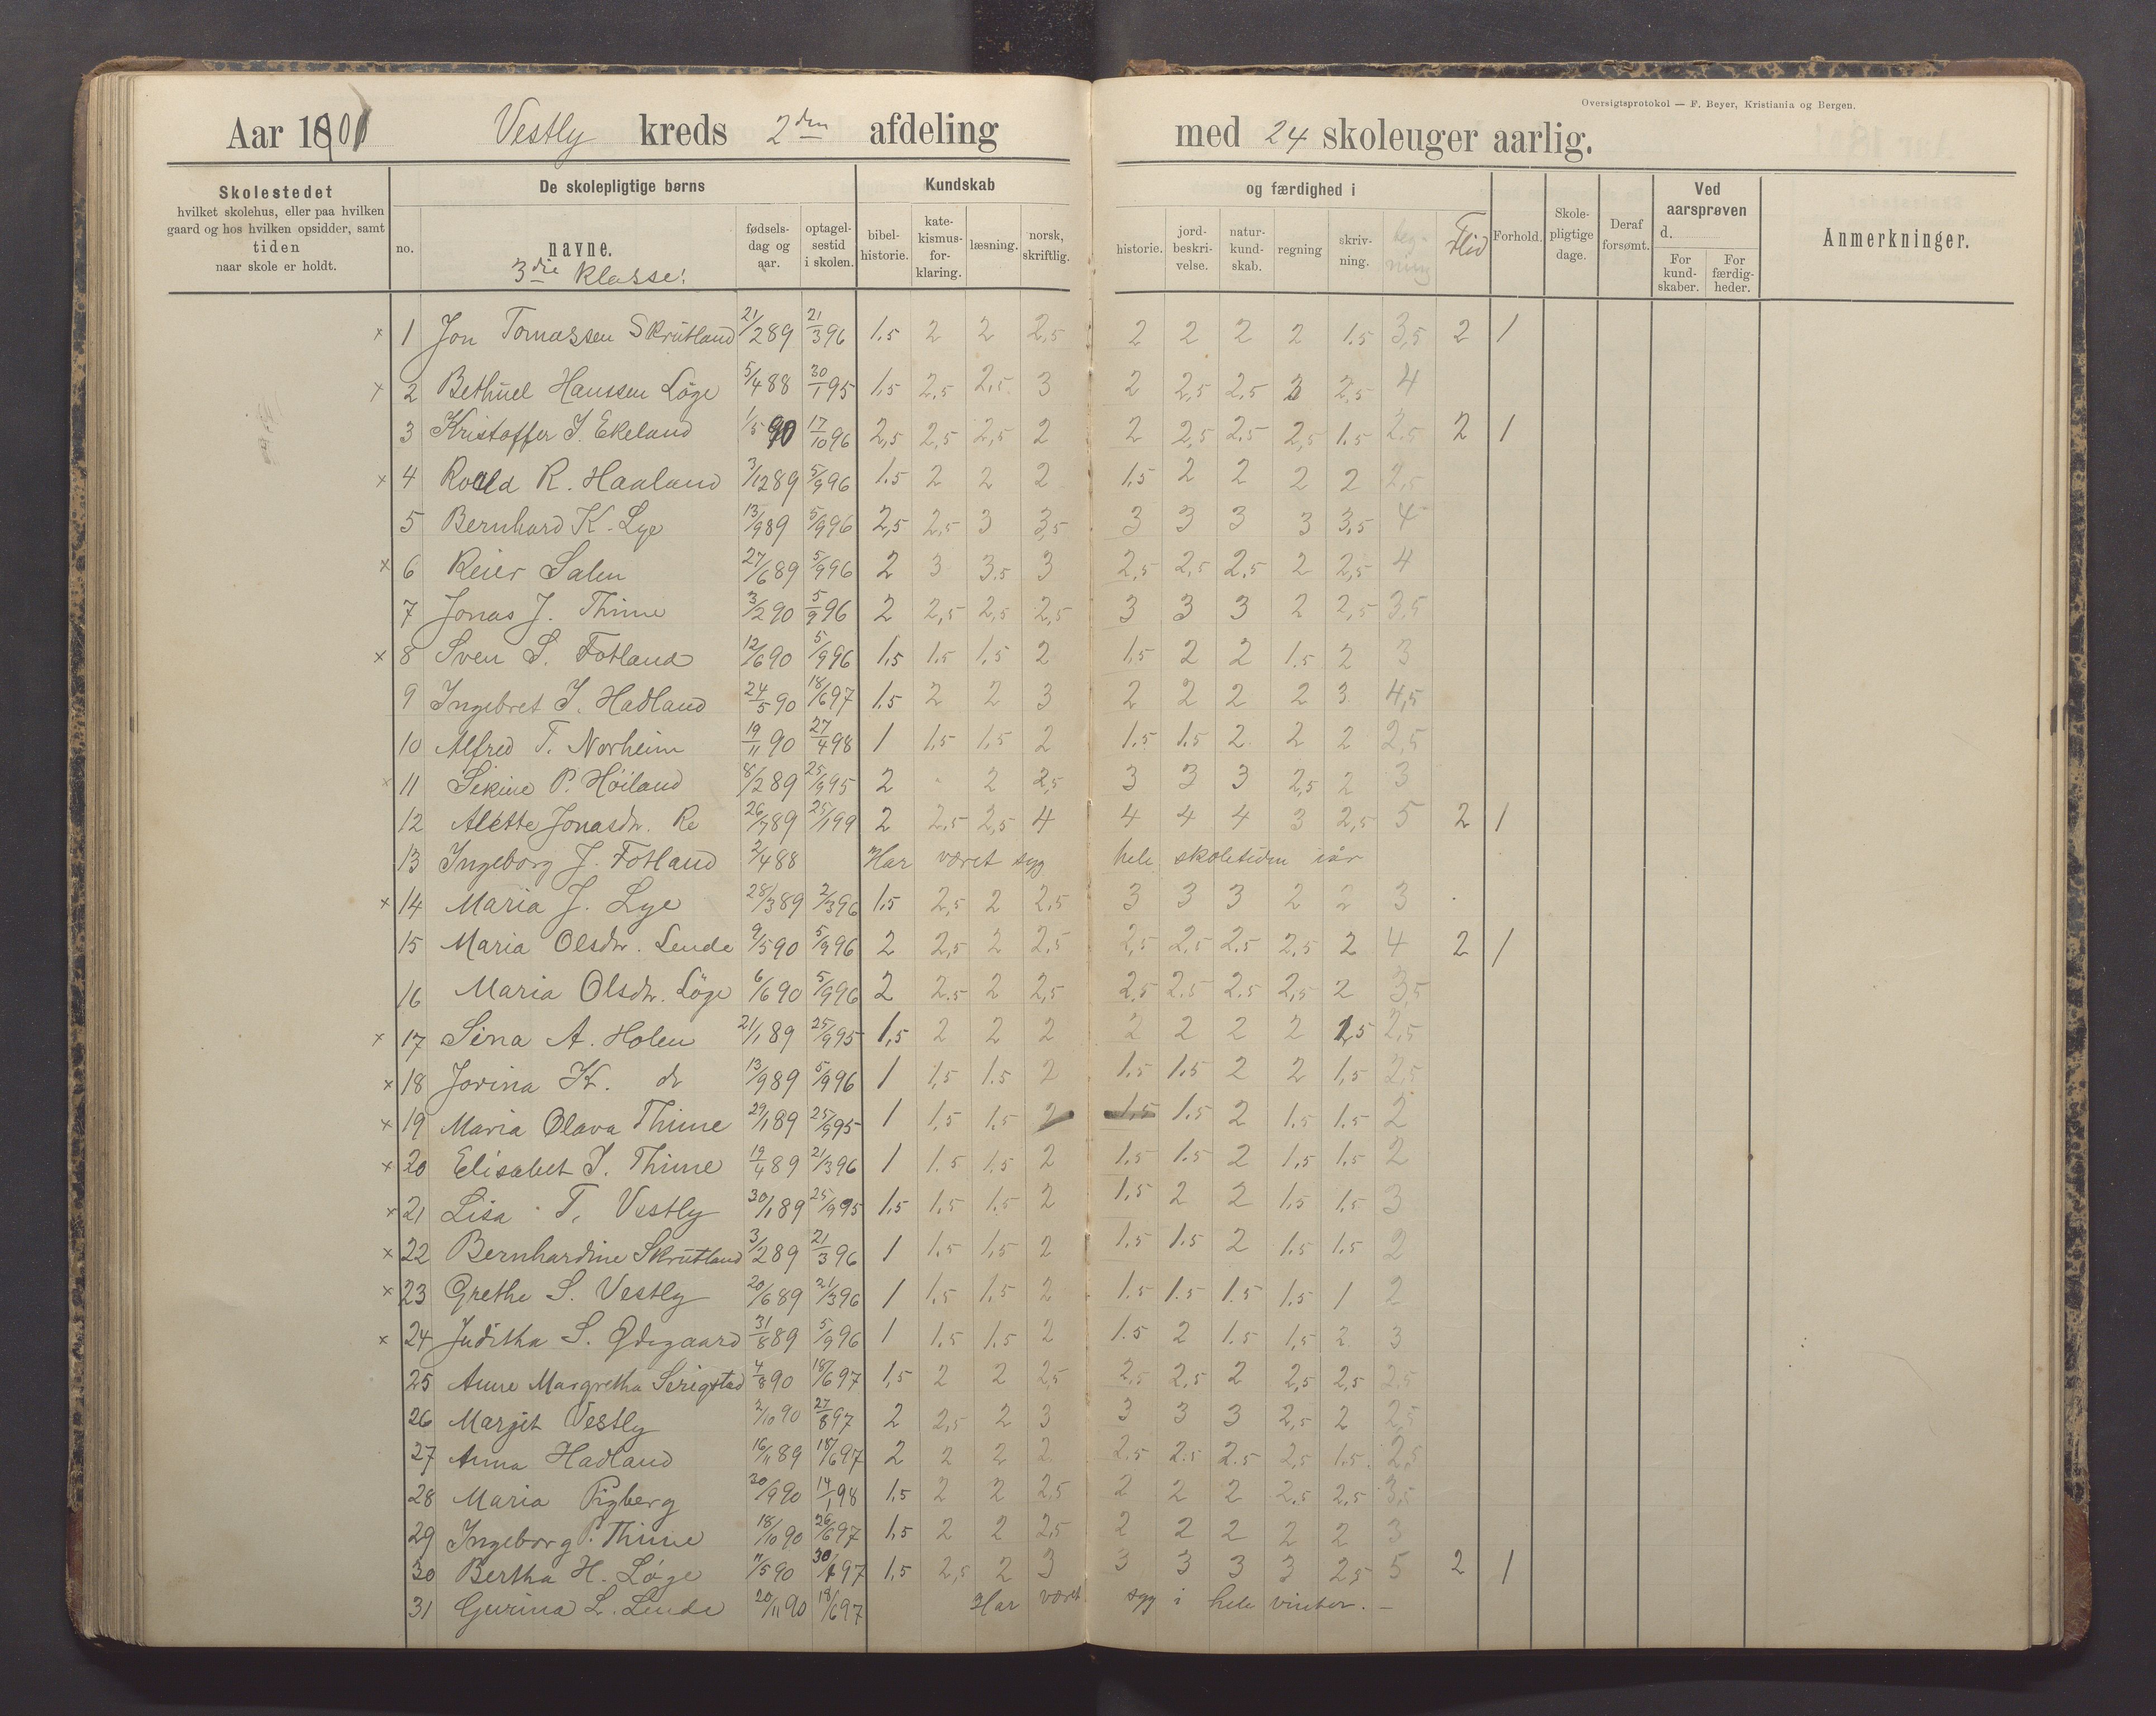 Oversigtsprotokol — F. Beyer, Kristiania og Bergen.
Aar 1901 Vestly kreds 2den afdeling med 24 skoleuger aarlig.
Skolestedet hvilket skolehus, eller paa hvilken gaard og hos hvilken opsidder, samt tiden naar skole er holdt.
De skolepligtige børns
no. navne. fødsels-dag og aar. optagel-sestid i skolen.
Kundskab og færdighed i
bibel-historie. kate-kismus-for-klaring. læsning. norsk, skriftlig. historie. jord-beskri-velse. natur-kund-skab. regning skriv-ning. teg-ning Flid Forhold. Skole-pligtige dage. Deraf forsømt.
Ved aarsprøven d.
For kund-skaber. For færdig-heder.
Anmerkninger.
3die Klasse!
× 1 Jon Tomassen Skrutland 21/2 89 21/3 96 1.5 2 2 2,5 2 2 2 2 1.5 3,5 2 1
× 2 Bethuel Hanssen Löge 5/4 88 30/1 95 1,5 2,5 2,5 3 2 2,5 2,5 3 2,5 4
3 Kristoffer J. Ekeland 1/5 90 17/10 96 2,5 2,5 2,5 2 2 2,5 2.5 2,5 1.5 2,5 2 1
× 4 Roald R. Haaland 3/12 89 5/9 96 1.5 2 2 2 1.5 2 2 2 2 2,5
5 Bernhard K. Lye 13/9 89 5/9 96 2,5 2,5 3 3,5 3 3 3 3 3,5 4
× 6 Reier Salen 27/6 89 5/9 96 2 3 3.5 3 2,5 2,5 2,5 2 2,5 4
7 Jonas J. Thime 3/2 90 5/9 96 2 2,5 2,5 2,5 3 3 3 2 2,5 3,5
× 8 Sven S. Fotland 12/6 90 5/9 96 1,5 1.5 1,5 2 1,5 2 2 1.5 2 3
9 Ingebret J. Hadland 24/5 90 18/6 97 1.5 2 2 3 2 2 2 2 3 4,5
10 Alfred T. Norheim 19/11 90 27/4 98 1 1,5 1,5 2 1.5 1.5 2 2 2 2,5
× 11 Sekine P. Höiland 8/2 89 25/9 95 2 2 2,5 3 3 3 2,5 2 3
12 Alette Jonasdr. Re 26/7 89 25/1 99 2 2,5 2,5 4 4 4 4 3 2,5 5 2 1
13 Ingeborg J. Fotland 2/4 88 Har været syg hele skoletiden iår
× 14 Maria J. Lye 28/3 89 2/3 96 1.5 2,5 2 2,5 3 3 3 2 2 3
15 Maria Olsdr. Lende 9/5 90 5/9 96 2 2,5 2 2,5 2,5 2,5 2.5 2,5 2 4 2 1
16 Maria Olsdr. Löge 6/6 90 5/9 96 2 2.5 2 2,5 2,5 2.5 2.5 2,5 2 3,5
× 17 Sina A. Holen 21/1 89 25/9 95 1,5 2 2 2 2 2 2 2 1,5 2,5
× 18 Jorina K. dr 13/9 89 5/9 96 1 1,5 1.5 2 1.5 1.5 2 2 1,5 2,5
× 19 Maria Olava Thime 29/1 89 25/9 95 1 1,5 1.5 2 1.5 1.5 2 1.5 1.5 2
× 20 Elisabet J. Thime 19/4 89 21/3 96 1 1.5 1.5 2 1.5 1.5 2 1,5 1.5 2
× 21 Lisa T. Vestly 30/1 89 25/9 95 1.5 1,5 1.5 2 1.5 2 2 1.5 1.5 3
× 22 Bernhardine Skrutland 3/2 89 21/3 96 1 1.5 1,5 2 1.5 1.5 2 1.5 1.5 2
× 23 Grethe S. Vestly 20/6 89 21/3 96 1 1,5 1,5 2 1.5 1.5 1.5 1.5 1 2
× 24 Juditha S. Ødegaard 31/8 89 5/9 96 1 1,5 1.5 2 1.5 2 1.5 1,5 2 3
25 Anne Margretha Serigstad 4/8 90 18/6 97 1,5 2 2 2,5 2,5 2,5 2 2,5 2,5 2,5
26 Margit Vestly 2/10 90 27/8 97 2 2,5 2 3 3 3 3 2,5 2 2,5
27 Anna Hadland 16/11 89 18/6 97 2 2 2 2 2.5 2.5 2.5 2,5 1.5 2,5
28 Maria Rigberg 30/9 90 14/1 98 1,5 2 2 2,5 2 2 2 2.5 2,5 3,5
29 Ingeborg P. Thime 18/10 90 26/6 97 1,5 2 2 2,5 2 2 2 2 2 3
30 Bertha H. Löge 11/5 90 30/1 97 1,5 2,5 2 3 3 3 3 3 2,5 5 2 1
31 Gurina L. Lende 20/11 90 18/6 97 Har været syg i hele vinter. –